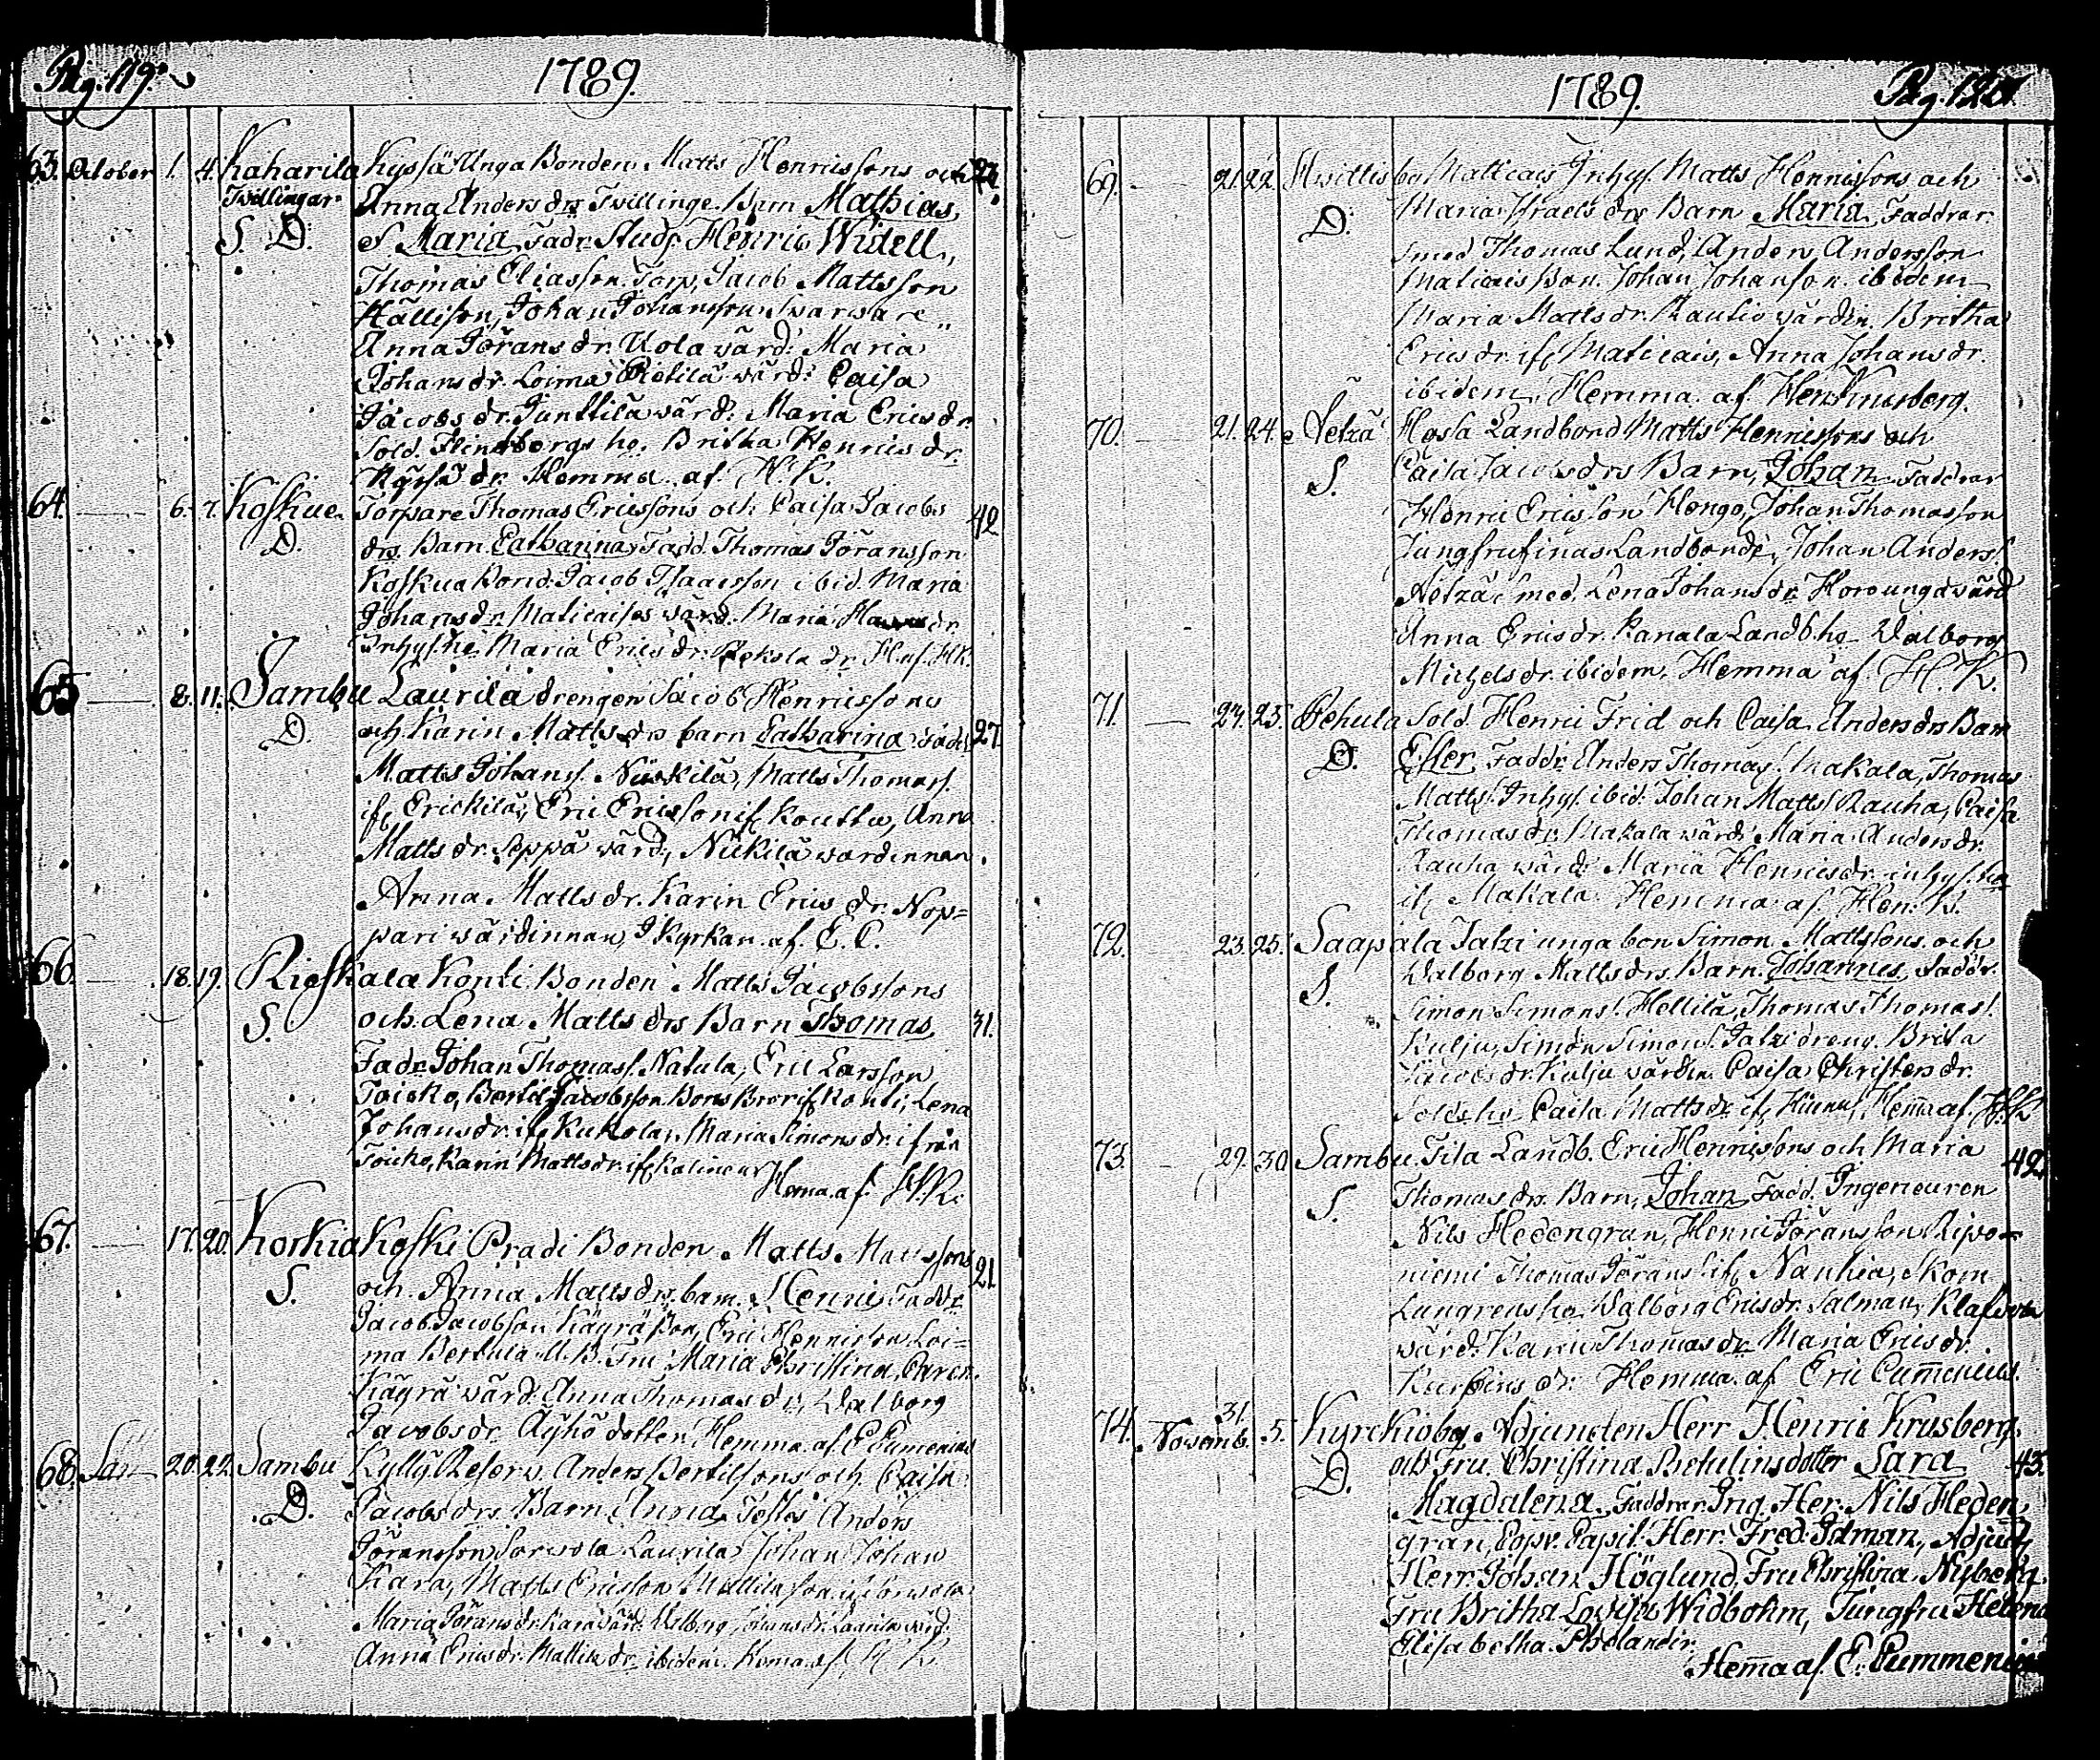 Pag. 119.
1789.
63. October 1. 4. Kaharila Kyssä Unga Bonden Matts Henricssons och
Twillingar Anna Anders drs Twillinge Barn Mathias
S. D. & Maria Fadr. Stud. Henric Widell,
Thomas Eliasson Torp, Jacob Mattsson
Hällison, Johan Johansson
Anna Görans dr. Uola värd. Maria
Johans dr. Loima Pietilä värd. Caisa
Jacobs dr. Junttila värd. Maria Erics dr.
Sold. Flintbergs ho. Britha Henrics dr.
Kyssä dr. Hemma af H. K.
64. 6. 7. Koskue Torpare Thomas Ericssons och Caisa Jacobs 42
D. drs Barn Catharina Fadd. Thomas Göransson
Koskua Bond. Jacob Isaacsson ibid. Maria
Johans dr. Maticaises värd. Maria dr
Inhys. ho Maria Erics dr. dr. H. af. H.K.
65 8. 11. Sambu Laurila drengen Jacob Henricssons
D. och Karin Matts drs barn Catharina fadd. 27.
Matts Johans. Niuckilä, Matts Thomas.
if. Erickilä, Eric Ericsson if. Kouttu, Anna
Matts dr. Seppä värd., Nickilä wärdinnan
Anna Matts dr. Karin Erics dr. Nop=
pari wärdinnan, I Kyrkan af. E. C.
66. 18. 19. Rieskala Konti Bonden Matts Jacobssons
S. och Lena Matts drs Barn Thomas, 31.
Fadr. Johan Thomass. Natula, Eric Larsson
Toicko, Bertil Jacobsson Bons Bror if. Konti, Lena
Johans dr. if. Kukola, Maria Simons dr. ifrån
Toicko, Karin Matts dr. if.
Hema. af. H. K.
67. 17. 20. Korkia Koski Pradi Bonden Matts Mattssons 21
S. och Anna Matts drs barn Henric Faddr
Jacob Jacobson Kägrä Bon, Eric Henricson Loi=
ma Bertula U. B. Fru Maria Christina
Kägrä värd. Anna Thomas dr, Walborg
Jacobs dr. Äyhö dotter Hemma af. E Cumenius
68. 20. 22. Sambu Kylly Reserv. Anders Bertilssons och Caisa
D. Jacobs drs Barn Anna, Anders
Göransson Laurila, Johan Johan
Kara, Matts Ericsson
Maria Görans dr. Kara värd. Walborg Laurila värd.
Anna Erics dr. dr ibidem. Hema. af H K
1789.
Pag.
69. 21. 22. Hwittisby Maticais Inhys. Matts Henricssons och
D. Maria Israels drs Barn Maria Faddrar
smed Thomas Lund, Anders Andersson
Maticais Bon. Johan Johanson ibidem
Maria Matts dr. Rautio värdin. Britha
Erics dr. if. Maticais, Anna Johans dr.
ibidem. Hemma. af Hen. Krusberg.
70. 21. 24. Aetzä Hosla Landbond. Matts Henricssons och
S. Caisa Jacobs drs Barn, Johan Faddrar
Henric Ericsson Hongo, Johan Thomasson
Landbonde, Johan Anders.
Aetzä smed, Lena Johans dr. unga värd
Anna Erics dr. Landb. ho Walborg
Michels dr. ibidem, Hemma af. H. K.
71. 24. 25. Pehula Sold. Henric Frid och Caisa Anders drs Barn
D. Ester, Faddr. Anders Thomas. Makala, Thomas
Matts. Inhys. ibid. Johan Matts. Rauha, Caisa
Thomas dr. Makala värd. Maria Anders dr.
Rauha värd. Maria Henrics dr. inhys. ho
if. Makala. Hemma. af. Hen: K.
72. 23. 25. Saapala Jalzi unga bon Simon Mattssons och
S. Walborg Matts drs. Barn. Johannes, Faddr.
Simon Simons. Hellilä, Thomas Thomas.
Kulju, Simon Simons. Jalzi dreng. Brita
Jacobs dr. Kulju värdin. Caisa Christers dr.
Solds. ho. Caisa Matts dr. if. Hem̄a af. H K
73. 29. 30. Sambu. Tila Landb. Eric Henricssons och Maria 42
S. Thomas drs. Barn, Johan Fadd. Ingenieuren
Nils Hedengran, Henric Göransson Ripo=
niemi Thomas Görans. if. Nanhia, Skom.
Lungrens ho Walborg Erics dr. Salman,
värd. Karin Thomas dr. Maria Erics dr.
dr. Hemma af Eric Cum̄enius.
74. Novemb. 31. 5. Kyrckioby. Adjuncten Herr Henric Krusberg
D. och Fru Christina Betulins dotter Sara 43.
Magdalena, Faddrar. Ing. Her. Nils Heden=
gran, Herr Fred. Idman, Adjunct.
Herr Johan Höglund, Fru Christina Nyberg.
Fru Britha Lovisa Widbohm, Jungfru Helena
Elisabetha Pholander,
Hem̄a af. E. Cummenius